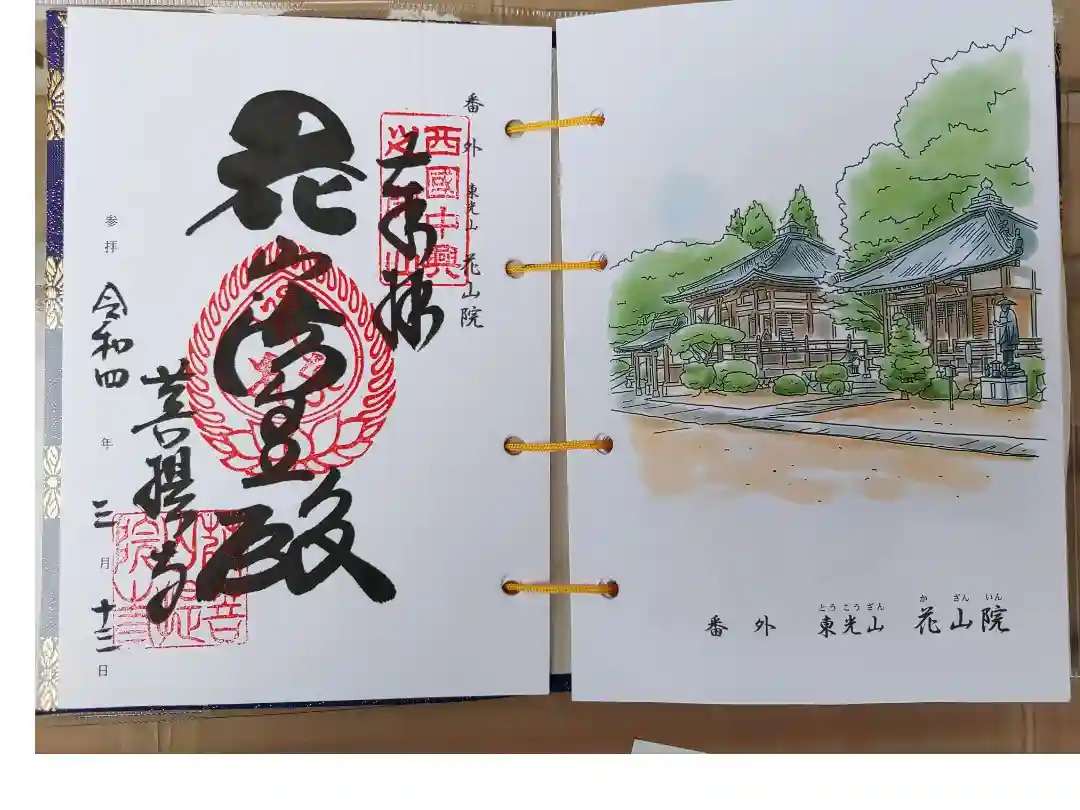 番外 東光山 花山院
西國中興
奉拝
花山法皇殿
菩提寺
参拝 令和四年三月十三日
番外 東光山 花山院
とうこうざん か ざん いん